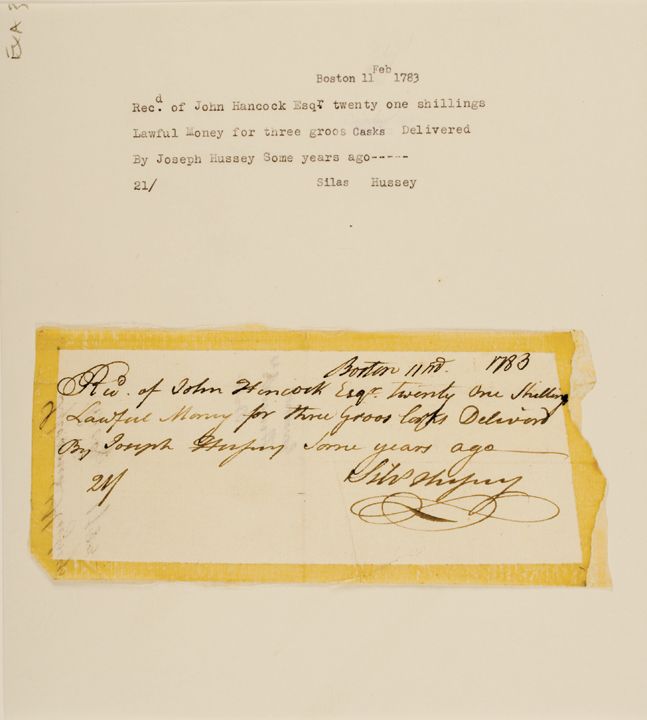 ExA 3
Boston 11 Feb 1783
Rec.d of John Hancock Esqr twenty one shillings
Lawful Money for three groos Casks Delivered
By Joseph Hussey Some years ago-----
21/ Silas Hussey
Boston 1783
Recd. of John Hancock Esqr. twenty one Shillings
Lawfull Money for three Groos Delivered
By Joseph Hussey Some years ago
21/ Hussey